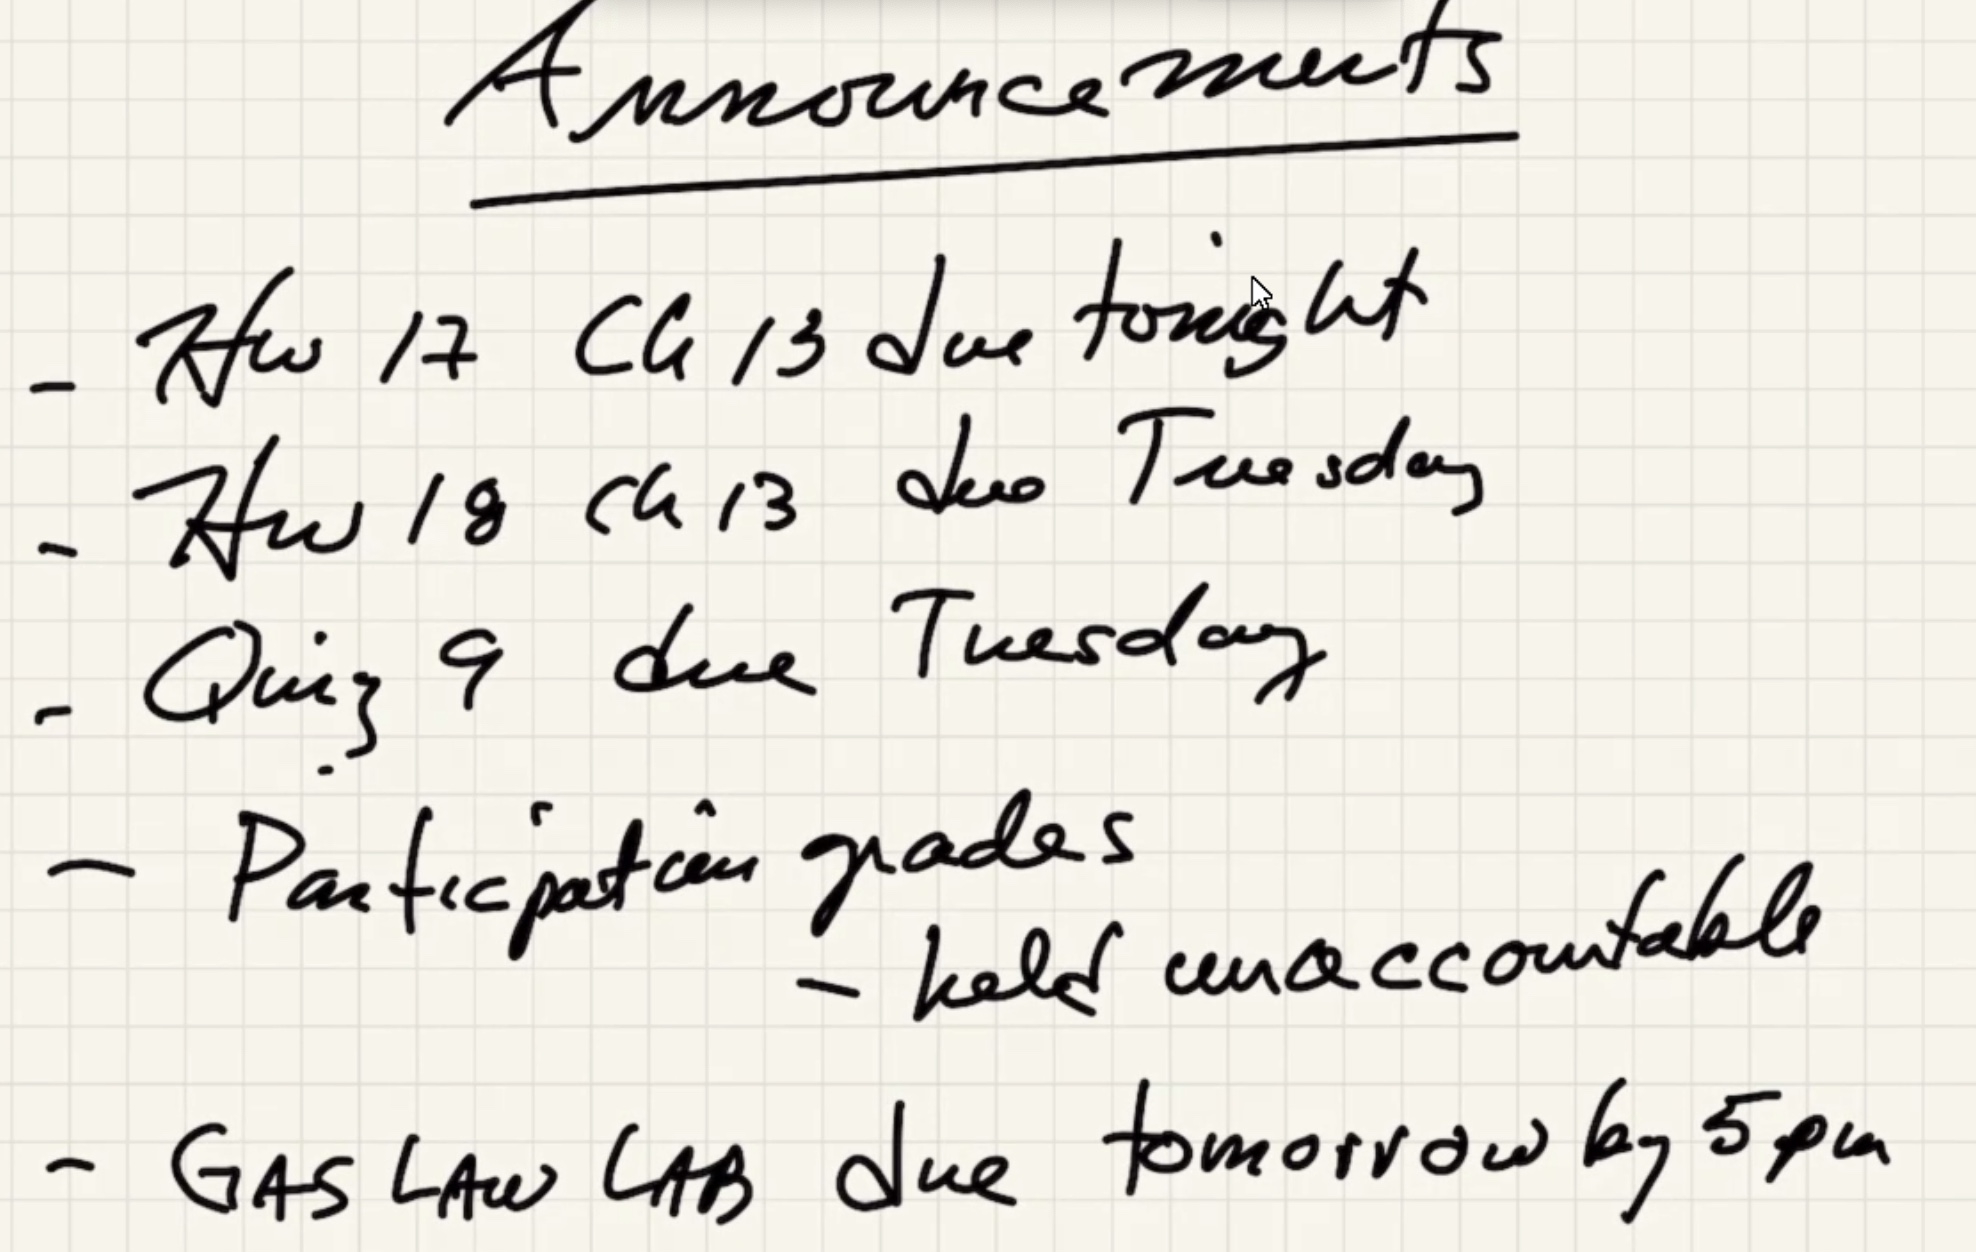 Announcements
- Hw 17 Ch 13 due tonight
- Hw 18 Ch 13 due Tuesday
- Quiz 9 due Tuesday
- Participation grades
- held unaccountable
- GAS LAW LAB due tomorrow by 5 pm